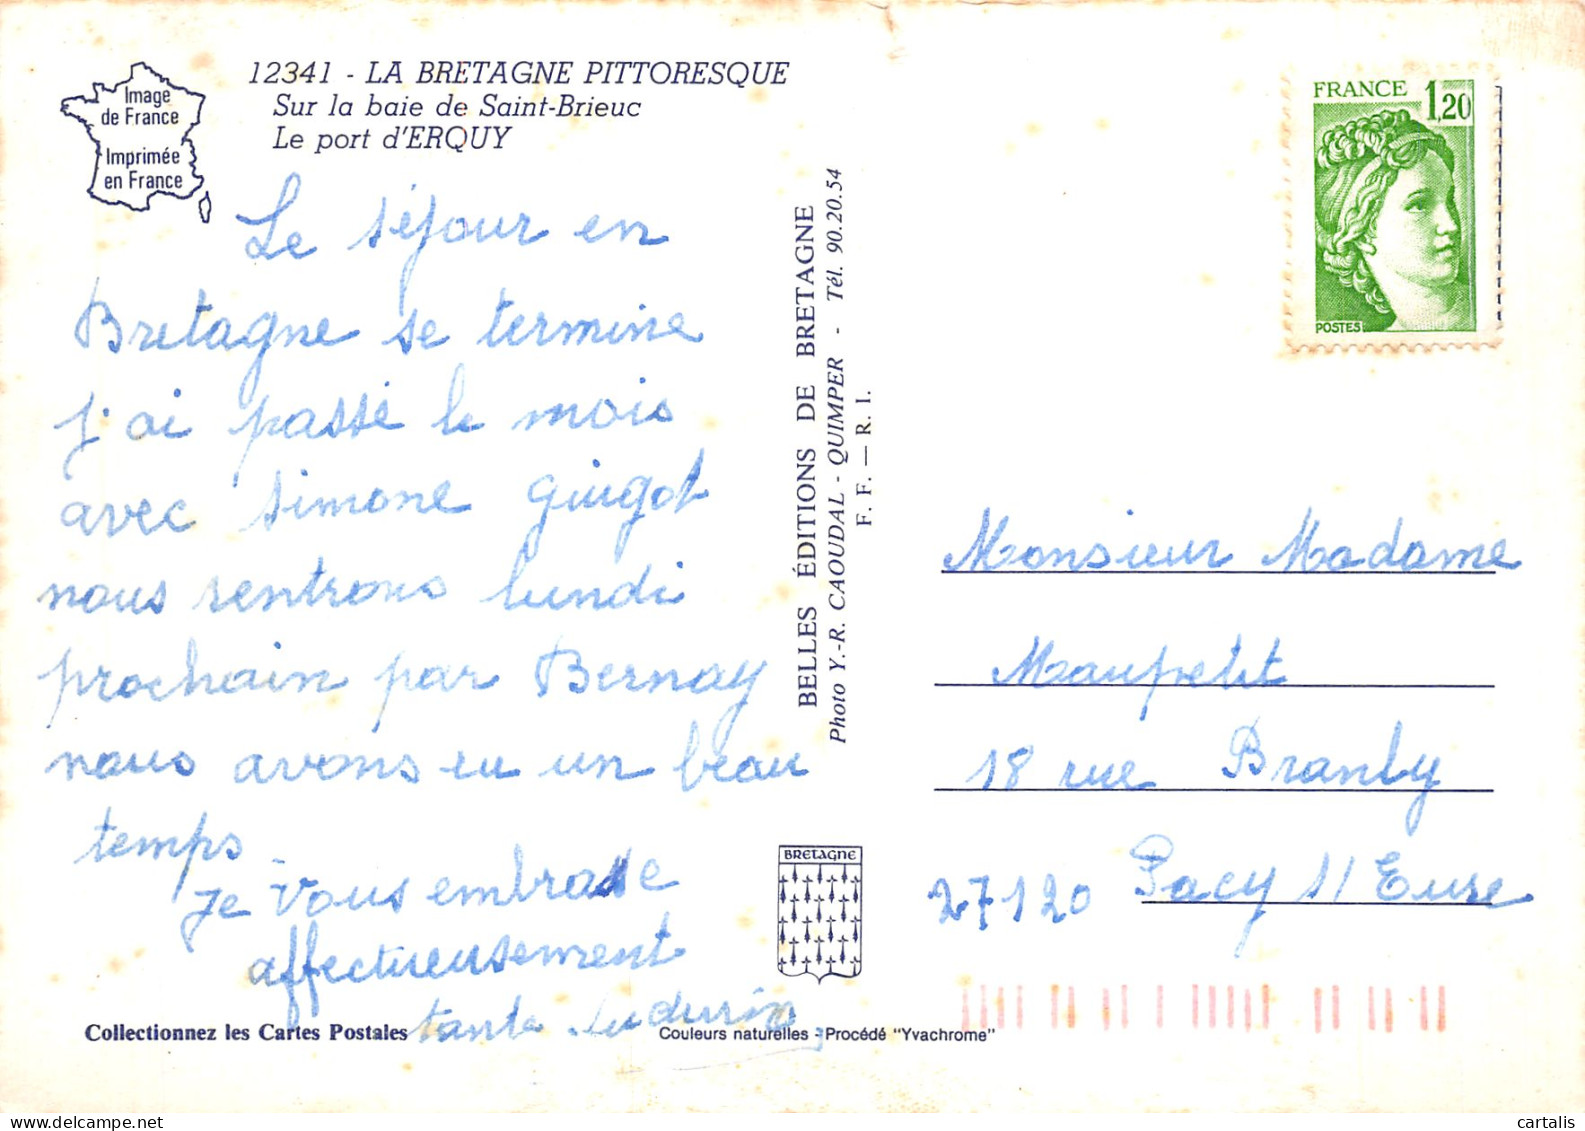 12341 - LA BRETAGNE PITTORESQUE
Sur la baie de Saint-Brieuc
Le port d'ERQUY
Image
de France
Imprimée
en France
Le séjour en
Bretagne se termine
j'ai passé le mois
avec Simone Guigot
nous rentrons lundi
prochain par Bernay
nous avons eu un beau
temps.
Je vous embrasse
affectueusement
tante
BELLES ÉDITIONS DE BRETAGNE
Photo Y.-R. CAOUDAL - QUIMPER - Tél. 90.20.54
F. F. — R. I.
FRANCE 1,20
POSTES
Monsieur Madame
Maupetit
18 rue Branly
27120 Pacy s/ Eure
BRETAGNE
Collectionnez les Cartes Postales
Couleurs naturelles - Procédé "Yvachrome"
cartalis